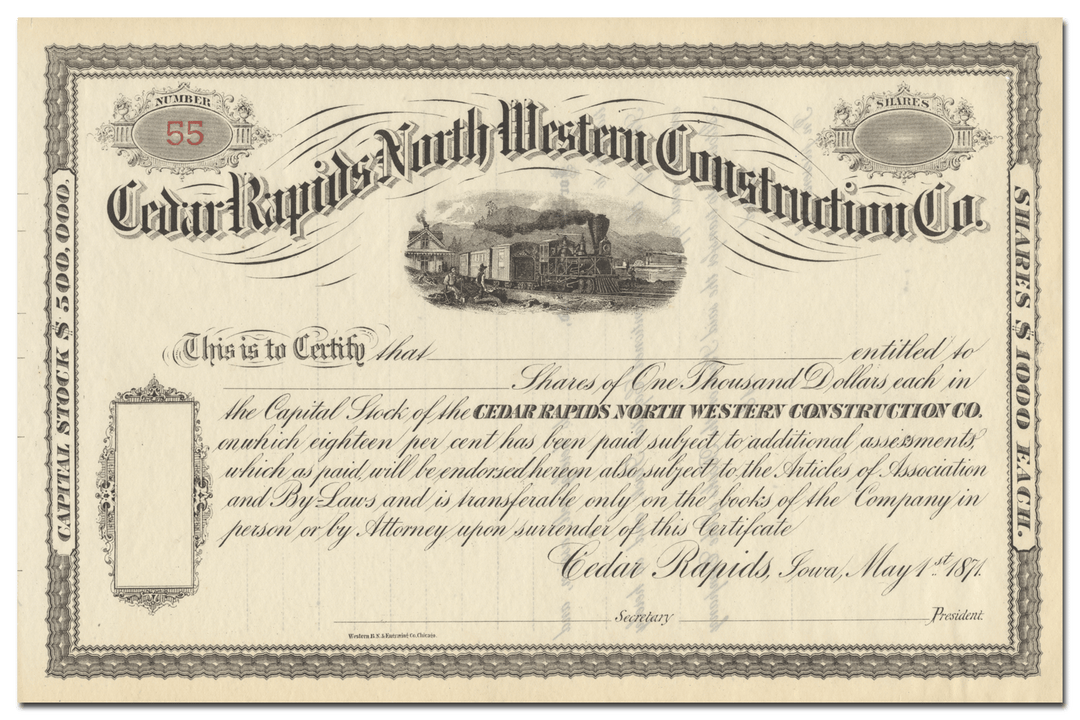 NUMBER
55
SHARES
Cedar Rapids North Western Construction Co.
CAPITAL STOCK $ 500.000.
SHARES $ 1000 EACH.
This is to Certify that entitled to
Shares of One Thousand Dollars each in
the Capital Stock of the CEDAR RAPIDS NORTH WESTERN CONSTRUCTION CO.
on which eighteen per cent has been paid subject to additional assessments,
which as paid, will be endorsed hereon also subject to the Articles of Association
and By-Laws and is transferable only on the books of the Company in
person or by Attorney upon surrender of this Certificate
Cedar Rapids, Iowa, May 1st 1871.
Secretary President.
Western B.N. & Engraving Co. Chicago.